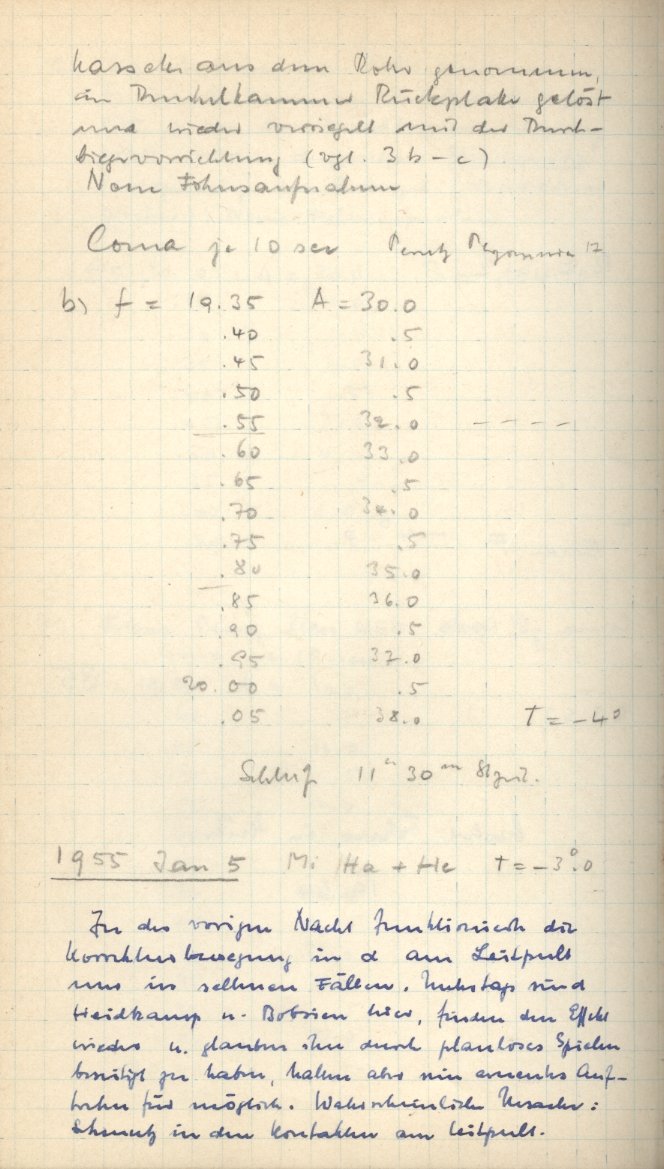 Kassette aus dem Rohr genommen,
in Dunkelkammer Rückplatte gelöst
und wieder versiegelt mit der Durch-
biegevorrichtung (vgl. 3b-c)
Neue Fokusaufnahmen
Coma je 10 sec Perutz
b) f = 19.35 A = 30.0
.40 .5
.45 31.0
.50 .5
.55 32.0 - - - -
.60 33.0
.65 .5
.70 34.0
.75 .5
.80 35.0
.85 36.0
.90 .5
.95 37.0
20.00 .5
.05 38.0 T = -4°
Schluß 11h 30m
1955 Jan 5 Mi Ha + He T = -3°.0
In der vorigen Nacht funktionierte die
Korrekturbewegung in α am Leitpult
nur in seltenen Fällen. sind
Heidkamp u. Bobsien hier, finden den Effekt
wieder u. glauben ihn durch planloses Spielen
beseitigt zu haben, halten aber ein erneutes Auf-
treten für möglich. Wahrscheinliche Ursache:
Schmutz in den Kontakten am Leitpult.